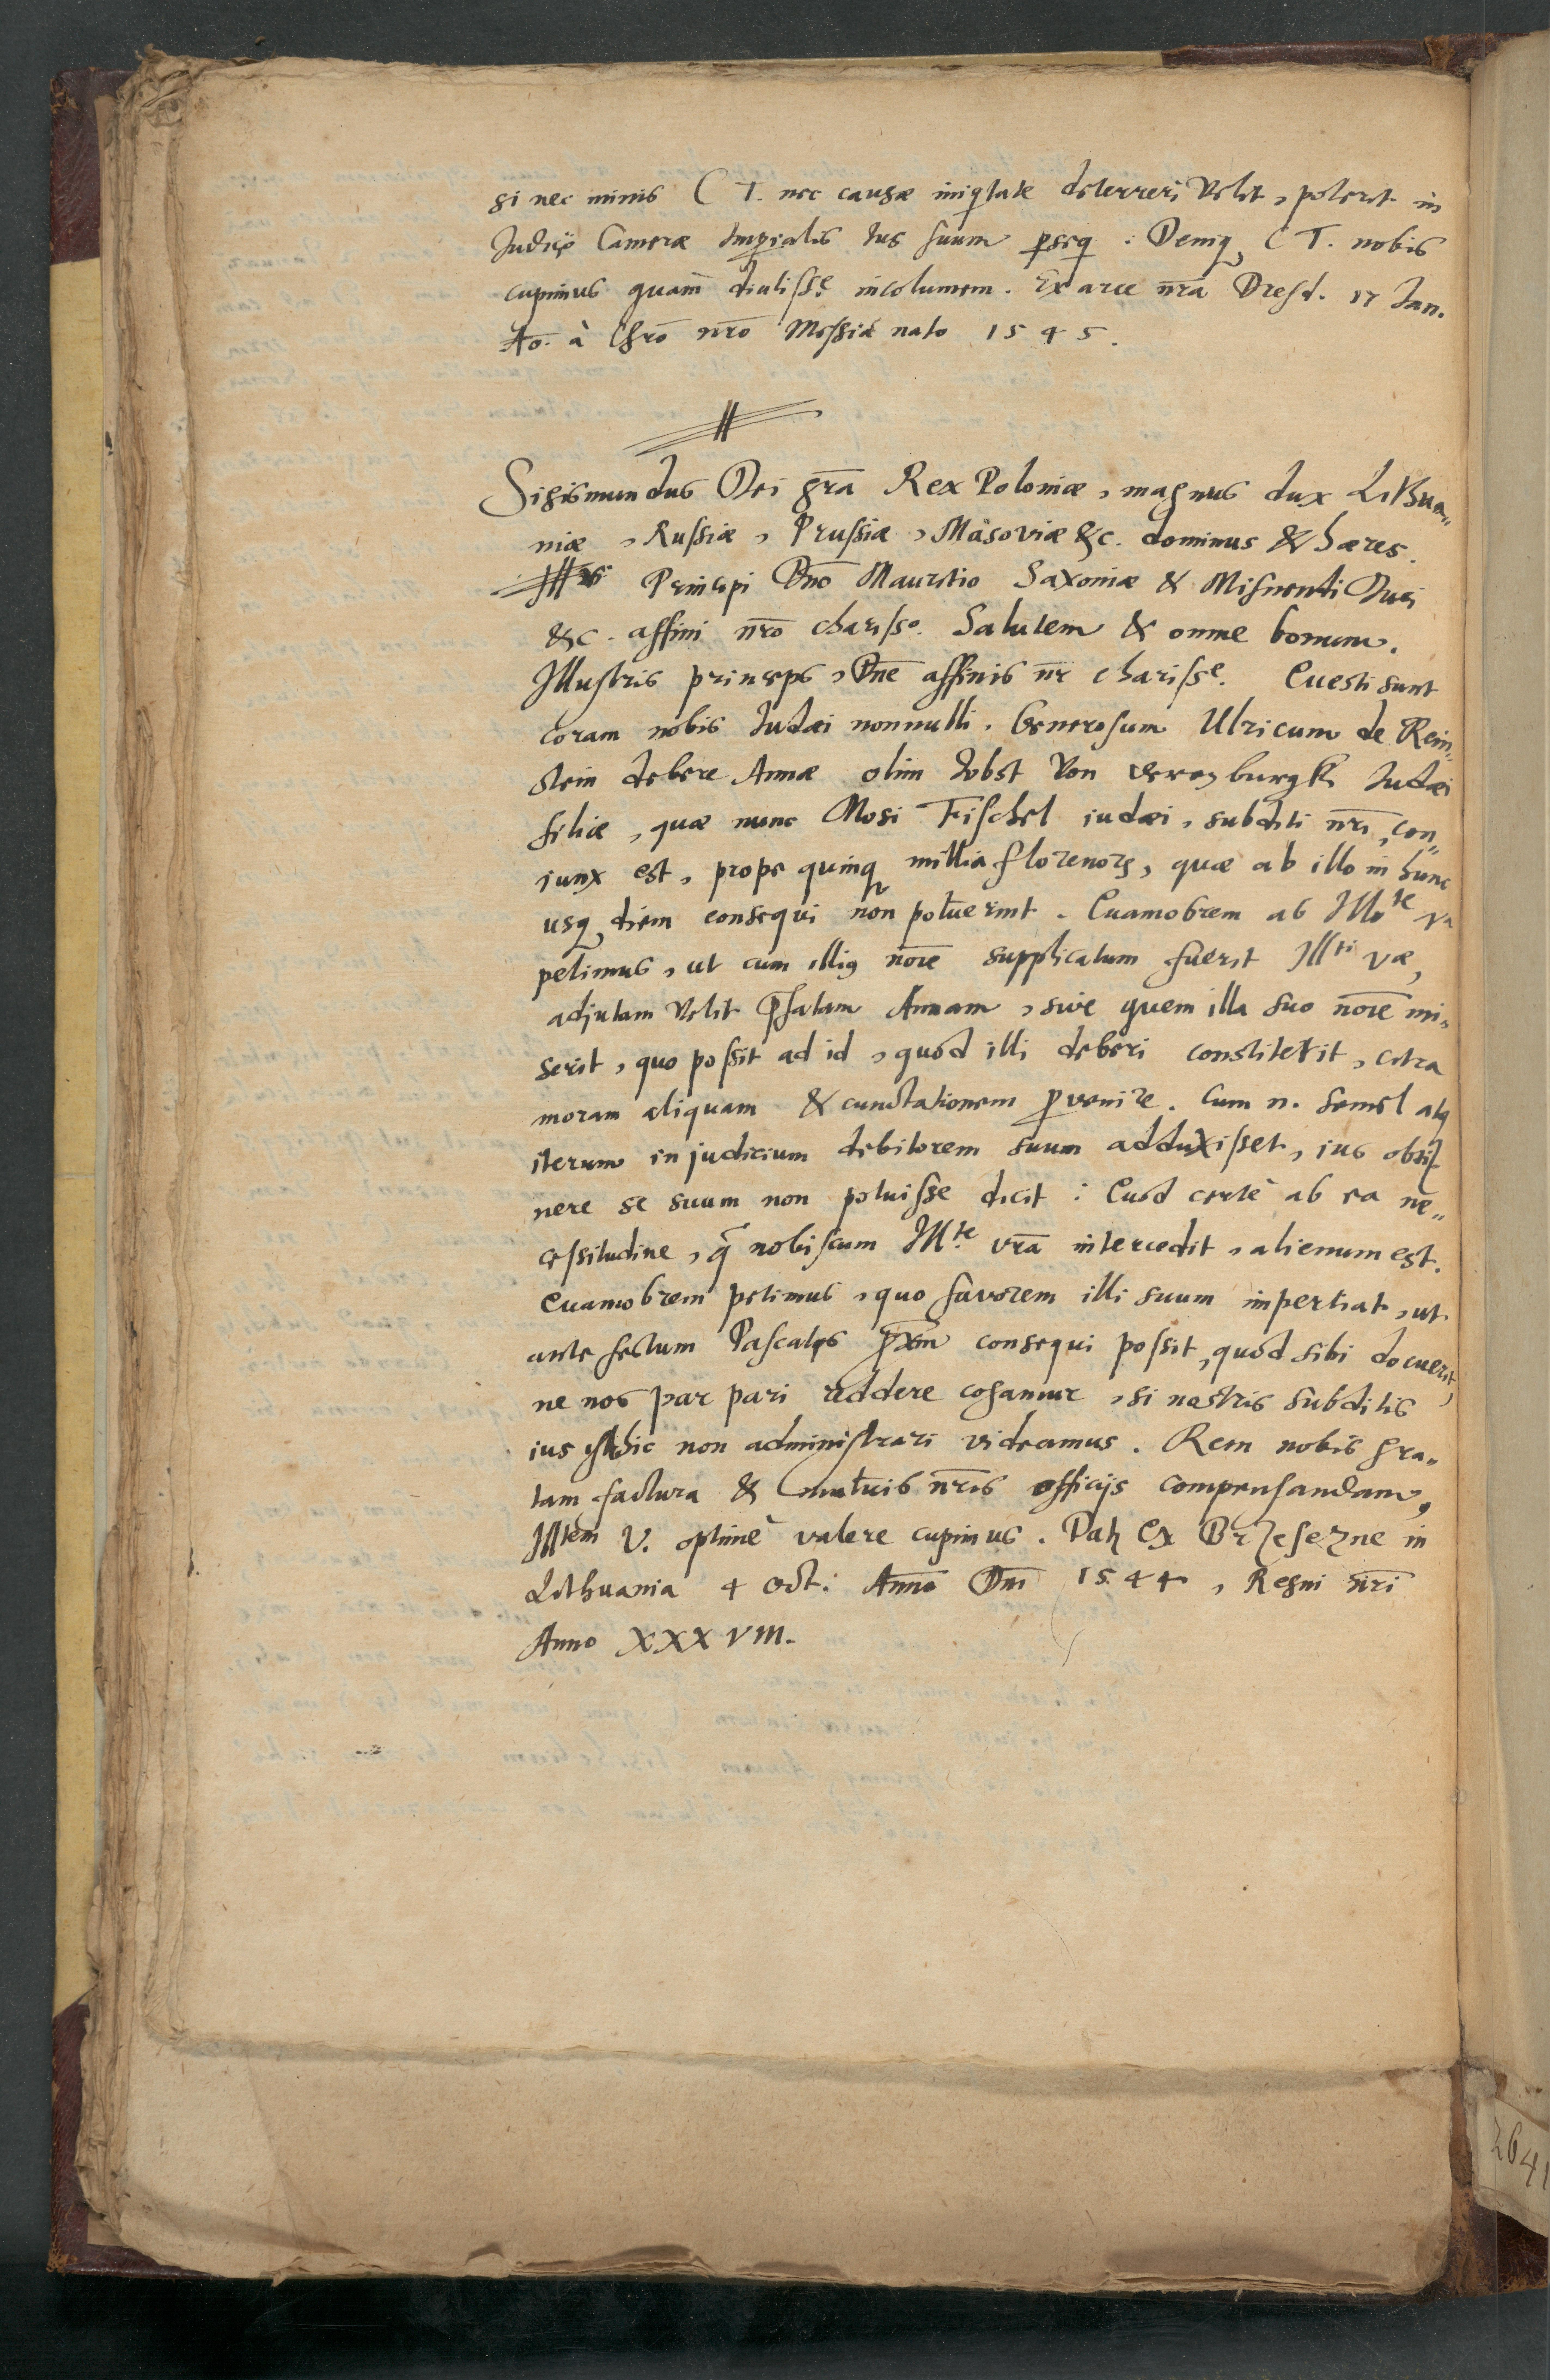 si nec minis C T. nec causæ iniqtate deterreri Velit, poterit in
Judicio Cameræ Imperialis Ius suum pseq : Deniq C T. nobis
cupimus quam̄ diutisse incolumem. Ex arce nr̄a Dresd. 17 Jan.
Ao. à Chrō nrō Messia nato 1545.
Sigismundus Dei grā Rex Poloniæ, magnus dux Lithua„
niæ, Russiæ, Prussiæ, Masoviæ &c. dominus & hæres.
Principi Dno Mauritio Saxoniæ & Misnensi Duci
&c. affini nrō chariss°. Salutem & omne bonum.
Illustris princeps, Dne affinis nr charisse. Questi sunt
coram nobis Iudæi nonnulli. Generosum Ulricum de Rein„
stein debere Annæ olim Jobst Von Iudæi
filiæ, quæ nunc Mosi Fischel iudæi, subditi nr̄i, con„
iunx est, prope quinq millia florenorū, quæ ab illo in hunc
usq diem consequi non potuerint. Quamobrem ab Illte va
petimus, ut cum illius noīe supplicatum fuerit Illti væ,
adjutam Velit pfatam Annam, sive quem illa suo noīe mi„
serit, quo possit ad id, quod illi deberi constiterit, citra
moram aliquam & cunctationem pvenire. Cum n. semel atq
iterum in judicium debitorem suum adduxisset, ius obti
nere se suum non potuisse dicit : Quod certè ab ea ne„
cessitudine, q nobiscum Illte vrā intercedit, alienum est.
Quamobrem petimus, quo favorem illi suum impertiat, ut
ante festum Pascatis pxm consequi possit, quod sibi docuerit,
ne nos par pari reddere cogamur, si nostris subditis
ius isthic non administrari videamus. Rem nobis gra„
tam factura & mutuis nr̄is officijs compensandam,
Illtem V. optimè valere cupimus. Dat ex in
Lithuania 4 Oct. Anno Dnī 1544, Regni nr̄i
Anno XXXVIII.
264